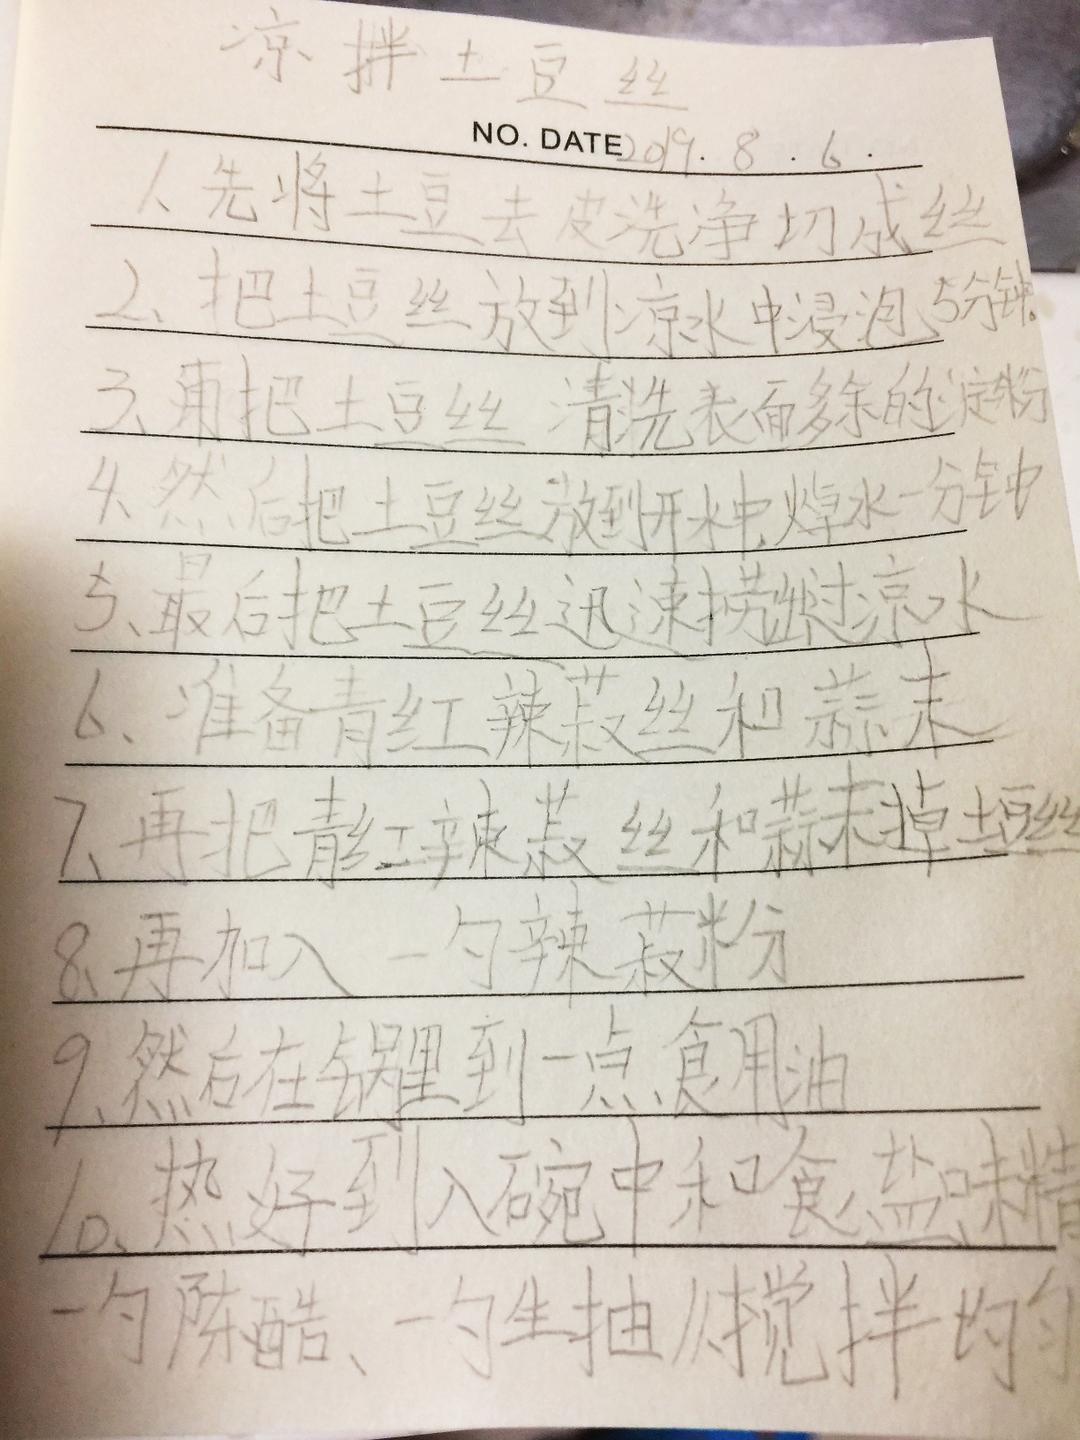 凉拌土豆丝
NO. DATE 2019.8.6.
1、先将土豆去皮洗净切成丝
2、把土豆丝放到凉水中浸泡5分钟。
3、再把土豆丝清洗表面多余的淀粉
4、然后把土豆丝放到开水中,焯水一分钟
5、最后把土豆丝迅速捞出过凉水
6、准备青红辣菽丝和蒜末
7、再把青红辣菽丝和蒜末掉土豆丝
8、再加入一勺辣菽粉
9、然后在锅里到一点食用油
10、热好到入碗中和食盐味精
一勺陈醋、一勺生抽 搅拌均匀